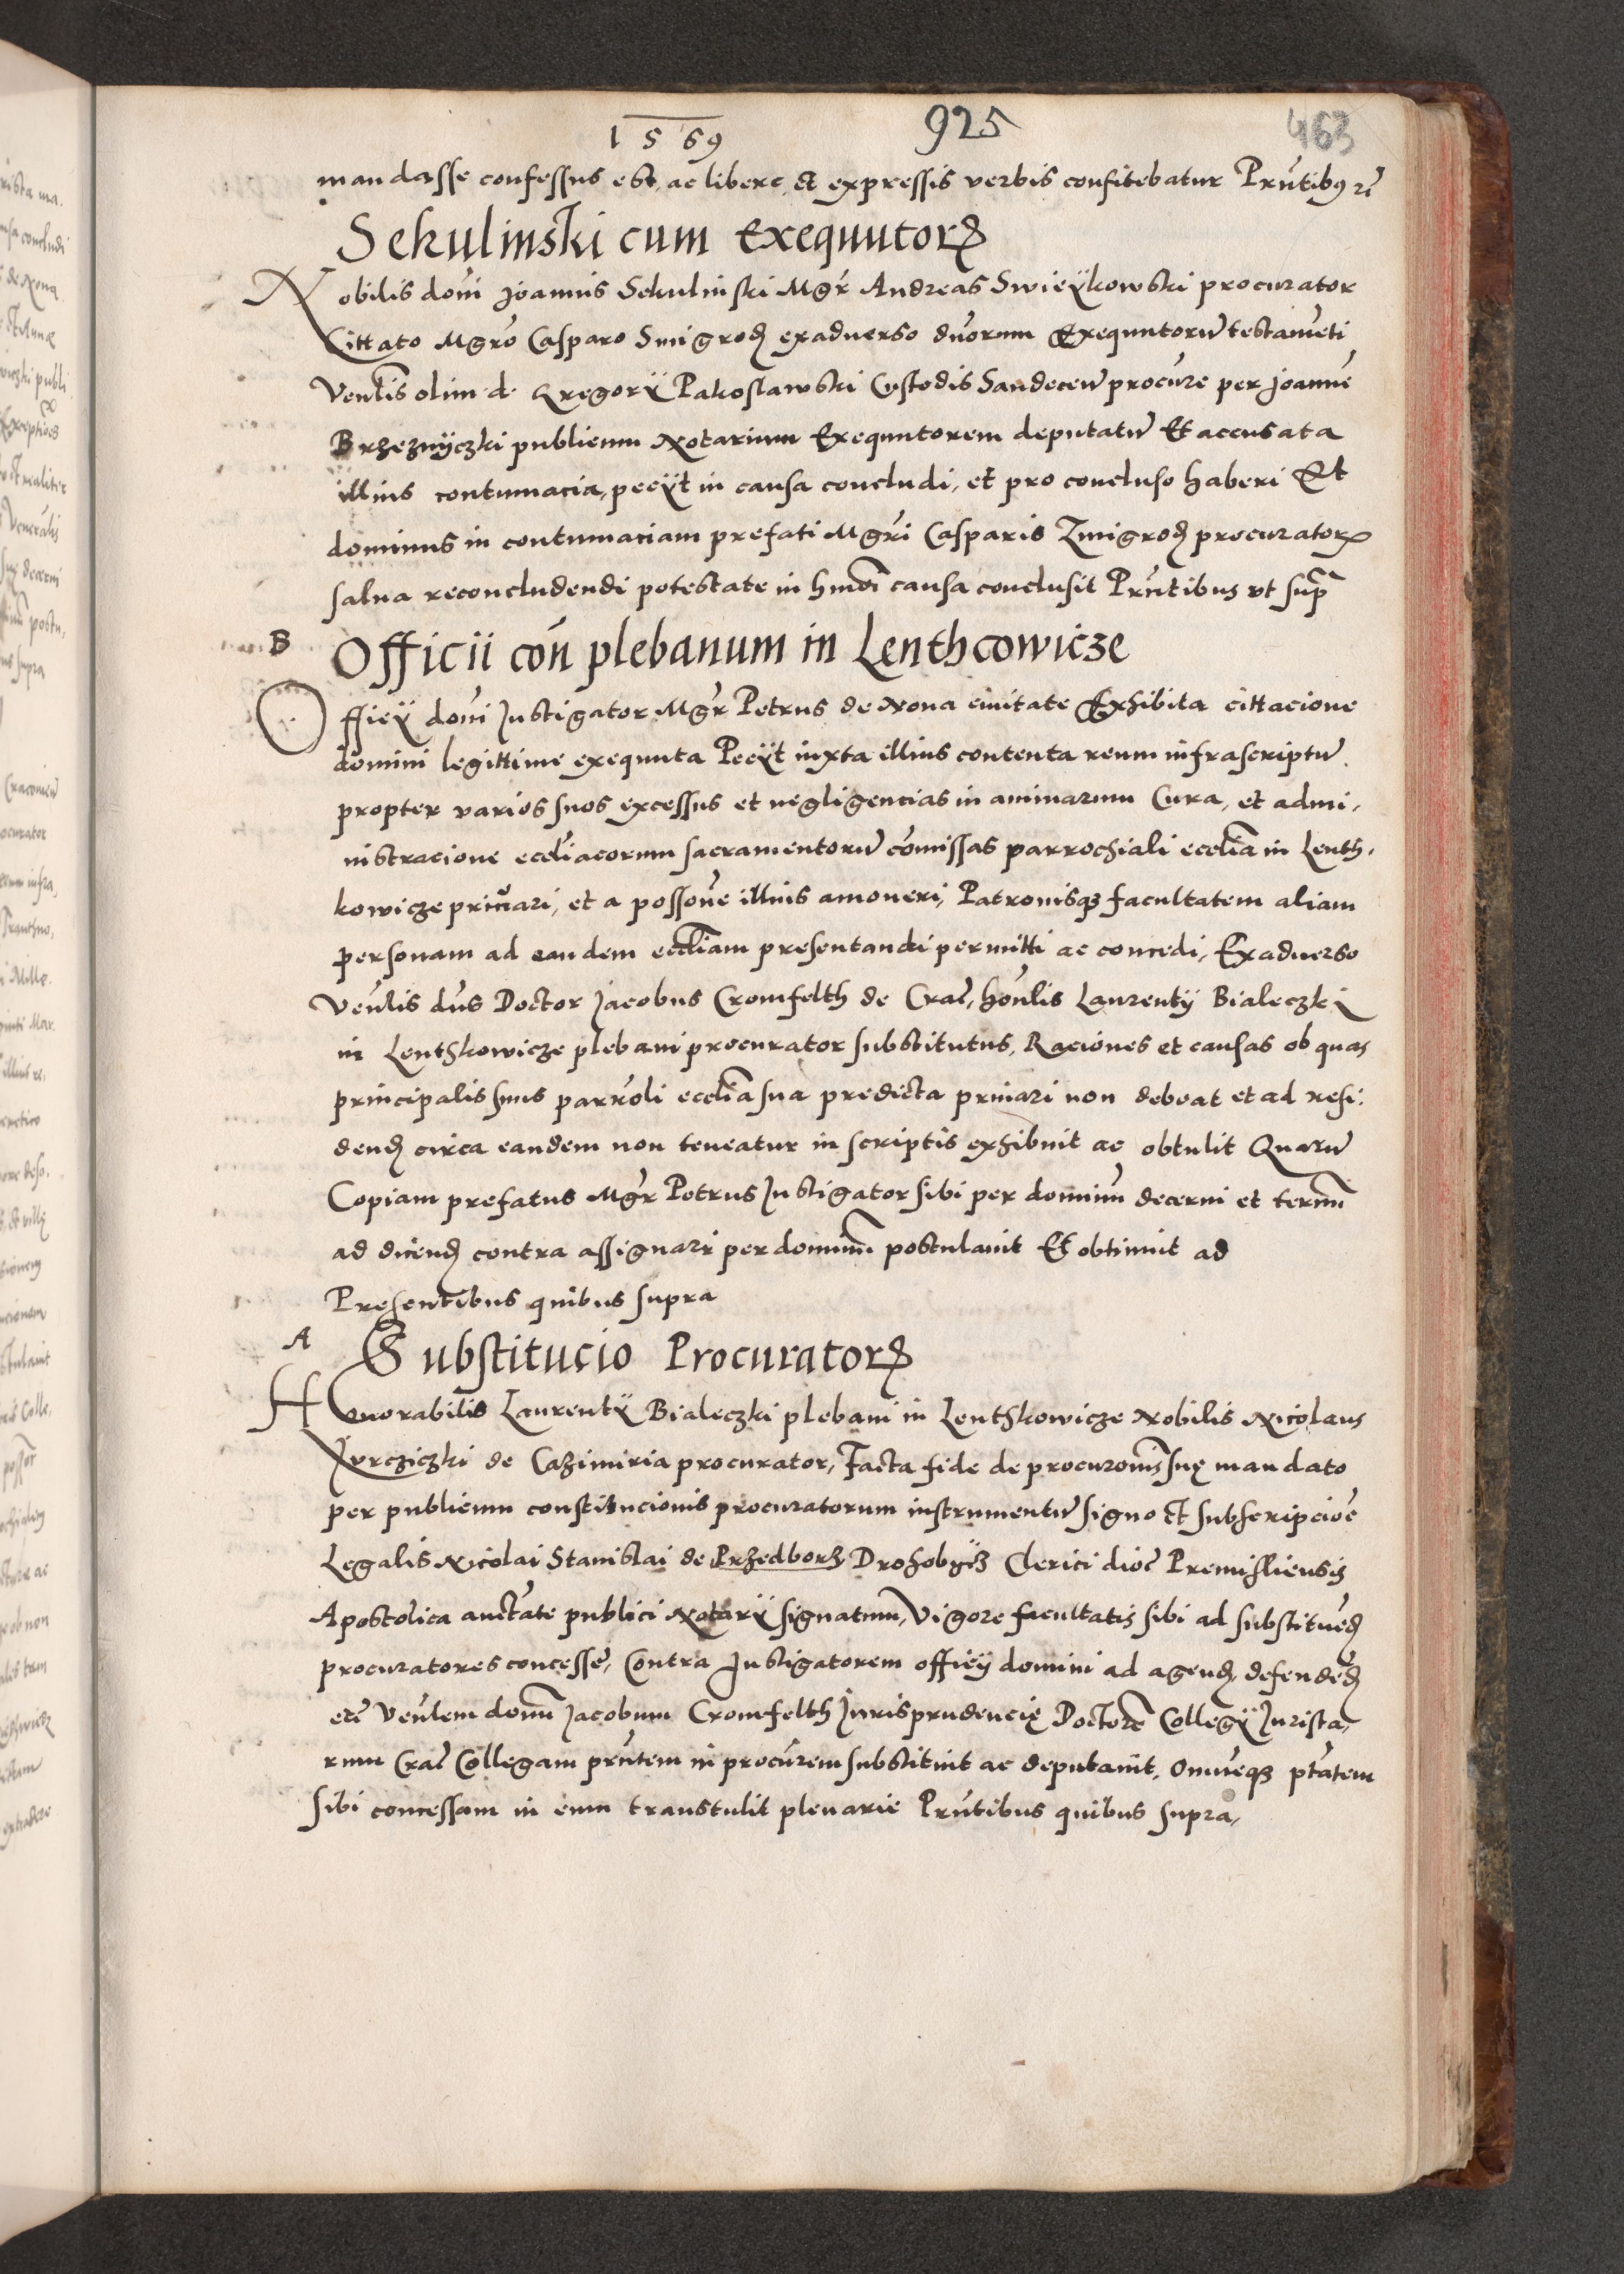 1569 925 463
mandasse confessus est, ac libere, et expressis verbis confitebatur Prñtibus
Sekulinski cum Exequutorꝫ
Nobilis domi Joannis Sekulinski Mgr̃ Andreas Swieÿkowski procurator
Cittato Mgrõ Casparo Smigrod exaduerso dnorum Exequutorũ testameti
Venlis olim d. Gregorÿ Pakoslawski Custodis Sandecen̄ procũre per Joanne
Brzeznÿczki publicum Notarium Exequutorem deputatũ Et accusata
illius contumacia, pecÿt in causa concludi, et pro concluso haberi Et
dominus in contumaciam prefati Mgri Casparis Zmigrod procurator
salua reconcludendi potestate in hmõi causa conclusit Prñtibus vt supra
B Officii con̄ plebanum in Lenthcowicze
Officÿ domi Instigator Mgr̃ Petrus de Noua ciuitate Exhibita cittacione
domini legittime exequuta Pecÿt iuxta illius contenta reum infrascriptũ
propter varios suos excessus et negligencias in animarum Cura, et admi,
nistracione eccliacorum sacramentorũ cõmissas parrochiali ecclia in Lenth,
kowicze priuari, et a possone illius amoueri, Patronisqꝫ facultatem aliam
personam ad eandem eccliam presentandi permitti ac concedi, Exaduerso
Venlis dns Doctor Jacobus Cromfelth de Crac̃, honlis Laurentÿ Bialeczki
in Lenthkowicze plebani procurator substitutus, Raciones et causas ob quas
principalis suus parroli ecclia sua predicta priuari non debeat et ad resi,
dend circa eandem non teneatur in scriptis exhibuit ac obtulit Quarũ
Copiam prefatus Mgr̃ Petrus Instigator sibi per dominũ decerni et termũ
ad dicend contra assignari per dominũ postulauit Et obtinuit ad
Presentibus quibus supra
A Substitucio Procuratorꝫ
Honorabilis Laurentÿ Bialeczki plebani in Lenthkowicze Nobilis Nicolaus
de Cazimiria procurator, Facta fide de procuronis suę mandato
per publicum constitucionis procuratorum instrumentũ signo et subscripcioe
Legalis Nicolai Stanislai de Przedborz Drohobÿcz Clerici dioc̃ Premisliensis
Apostolica auctate publici Notarÿ signatum, Vigore facultatis sibi ad substitued
procuratores concesse, Contra Instigatorem officÿ domini ad agend, defended
etc̃ Venlem domũ Jacobum Cromfelth Jurisprudencię Doctorẽ Collegÿ Jurista,
rum Crac̃ Collegam prñtem in procũrem substituit ac deputauit, Omneqꝫ ptãtem
sibi concessam in eum transtulit plenarie Prñtibus quibus supra,